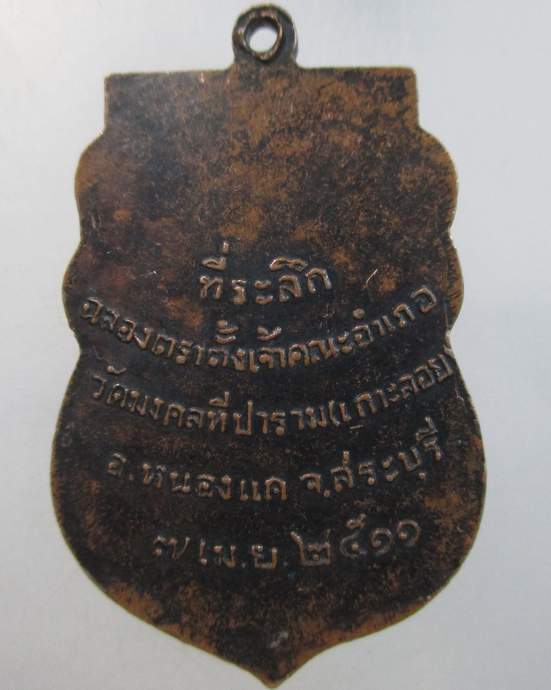 ที่ระลึก
ฉลองตราตั้งเจ้าคณะอำเภอ
วัดมงคลทีปาราม(เกาะลอย)
อ.หนองแค จ.สระบุรี
๗ เม.ย. ๒๕๑๑